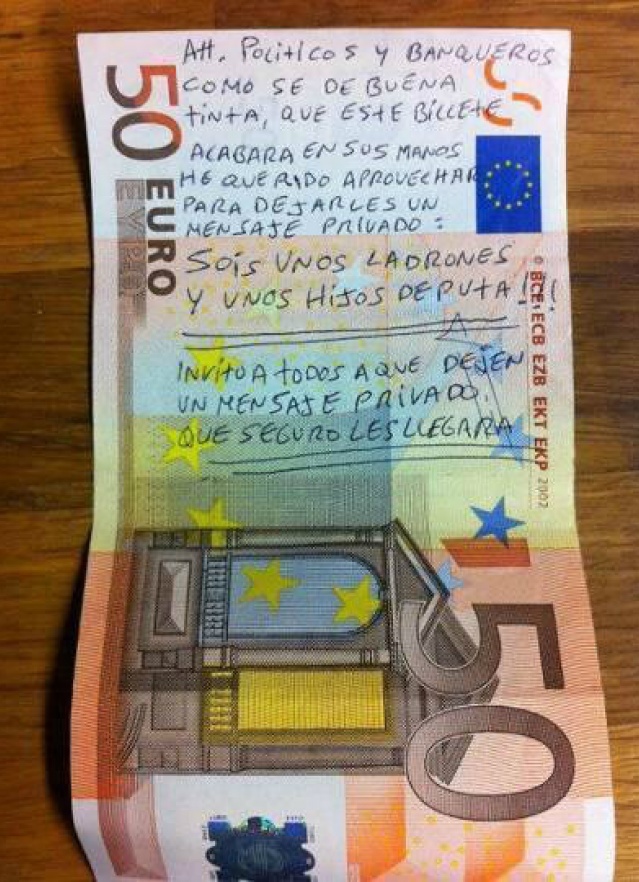 Att. Politicos y BANQUEROS
COMO SE DE BUENA
tinta, QUE ESTE BILLETE
ACABARA EN SUS MANOS
HE QUERIDO APROVECHAR
PARA DEJARLES UN
MENSAJE PRIVADO:
SOIS UNOS LADRONES
Y UNOS HIJOS DE PUTA!!!
INVITO A TODOS A QUE DEJEN
UN MENSAJE PRIVADO.
QUE SEGURO LES LLEGARA
50 EURO
ΕΥΡΩ
© BCE ECB EZB EKT EKP 2002
50